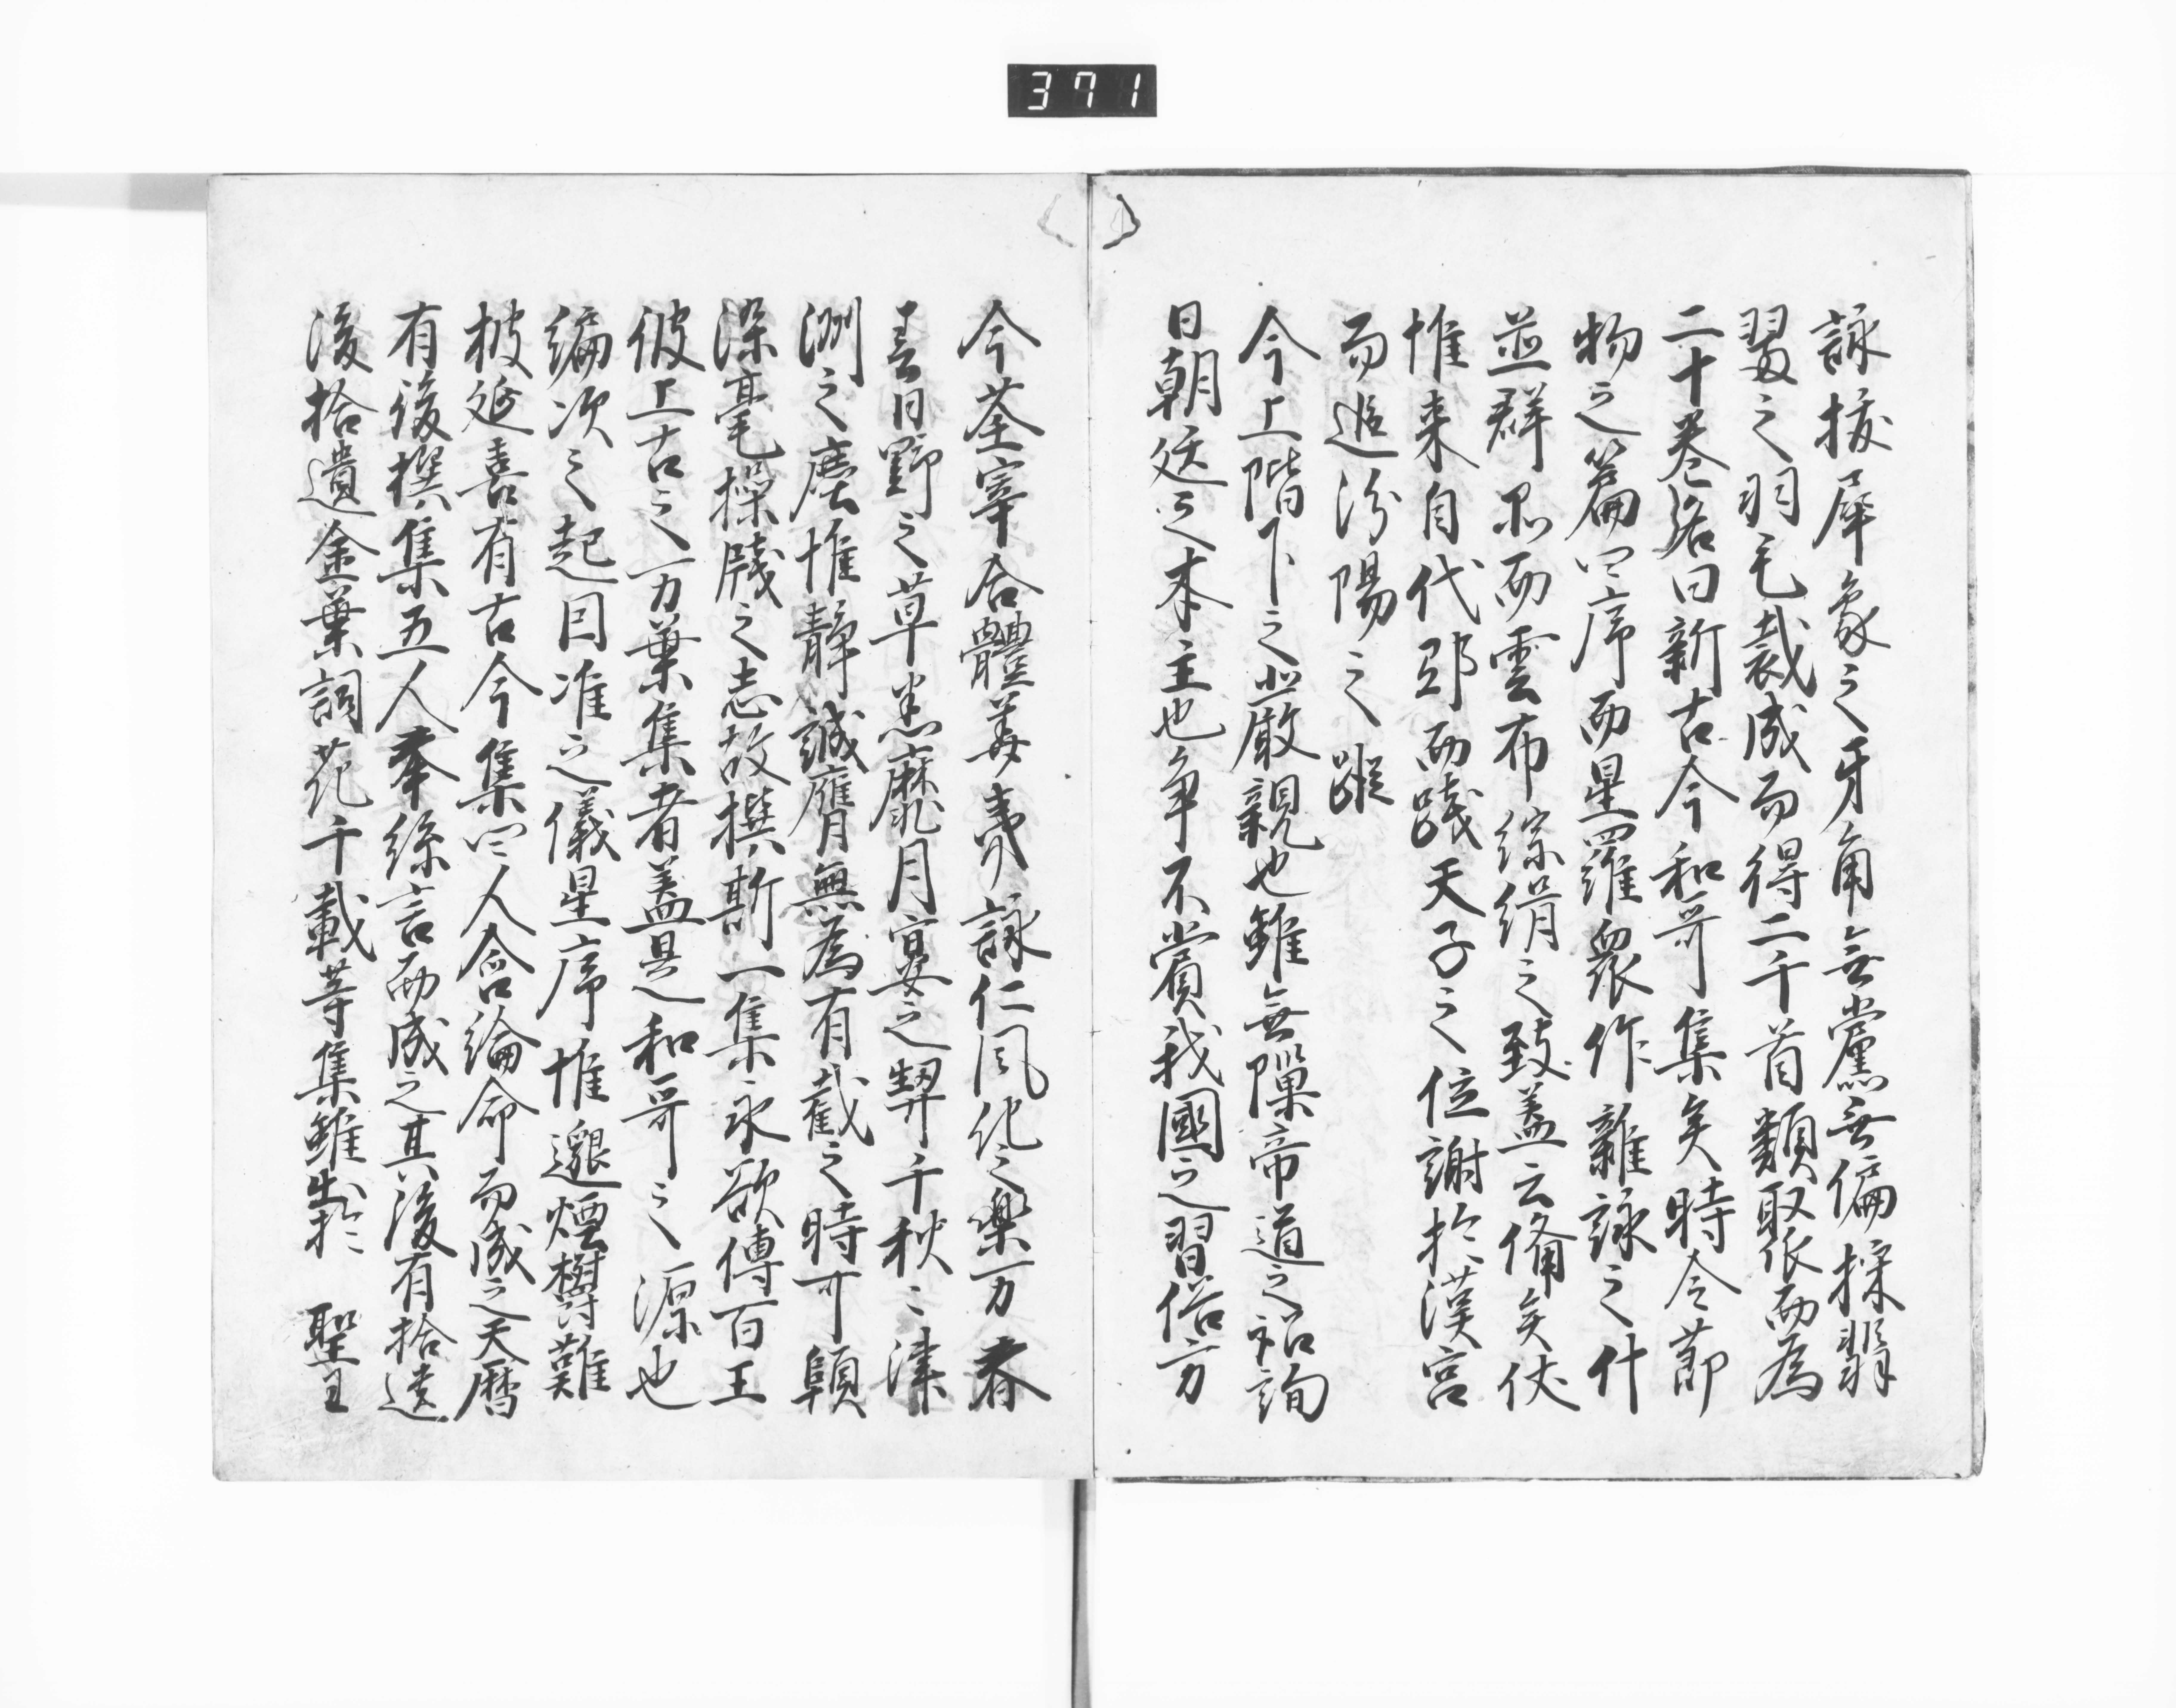 371
詠抜犀象之牙角無黨無偏採翡
翠之羽毛裁成而得二千首類聚而為
二十巻名曰新古今和哥集矣時令節
物之篇四序而星羅衆作雜詠之什
並群品而雲布綜緝之致蓋云備矣伏
惟来自代邸而踐天子之位謝於漢宮
而追汾陽之蹤
今上陛下之嚴親也雖無隙帝道之諮詢
日朝廷之本主也争不賞我國之習俗方
今荃宰合體華夷詠仁風化之樂万春
春日野之草悉靡月宴之契千秋〻津
洲之塵惟靜誠膺無為有截之時可頤
染毫操牋之志故撰斯一集永欲傳百王
彼上古之万葉集者蓋是和哥之源也
編次之起因准之儀星序惟邈煙欝難
披延喜有古今集四人含綸命而成之天暦
有後撰集五人奉絲言而成之其後有拾遺
後拾遺金葉詞花千載等集雖出於　聖王